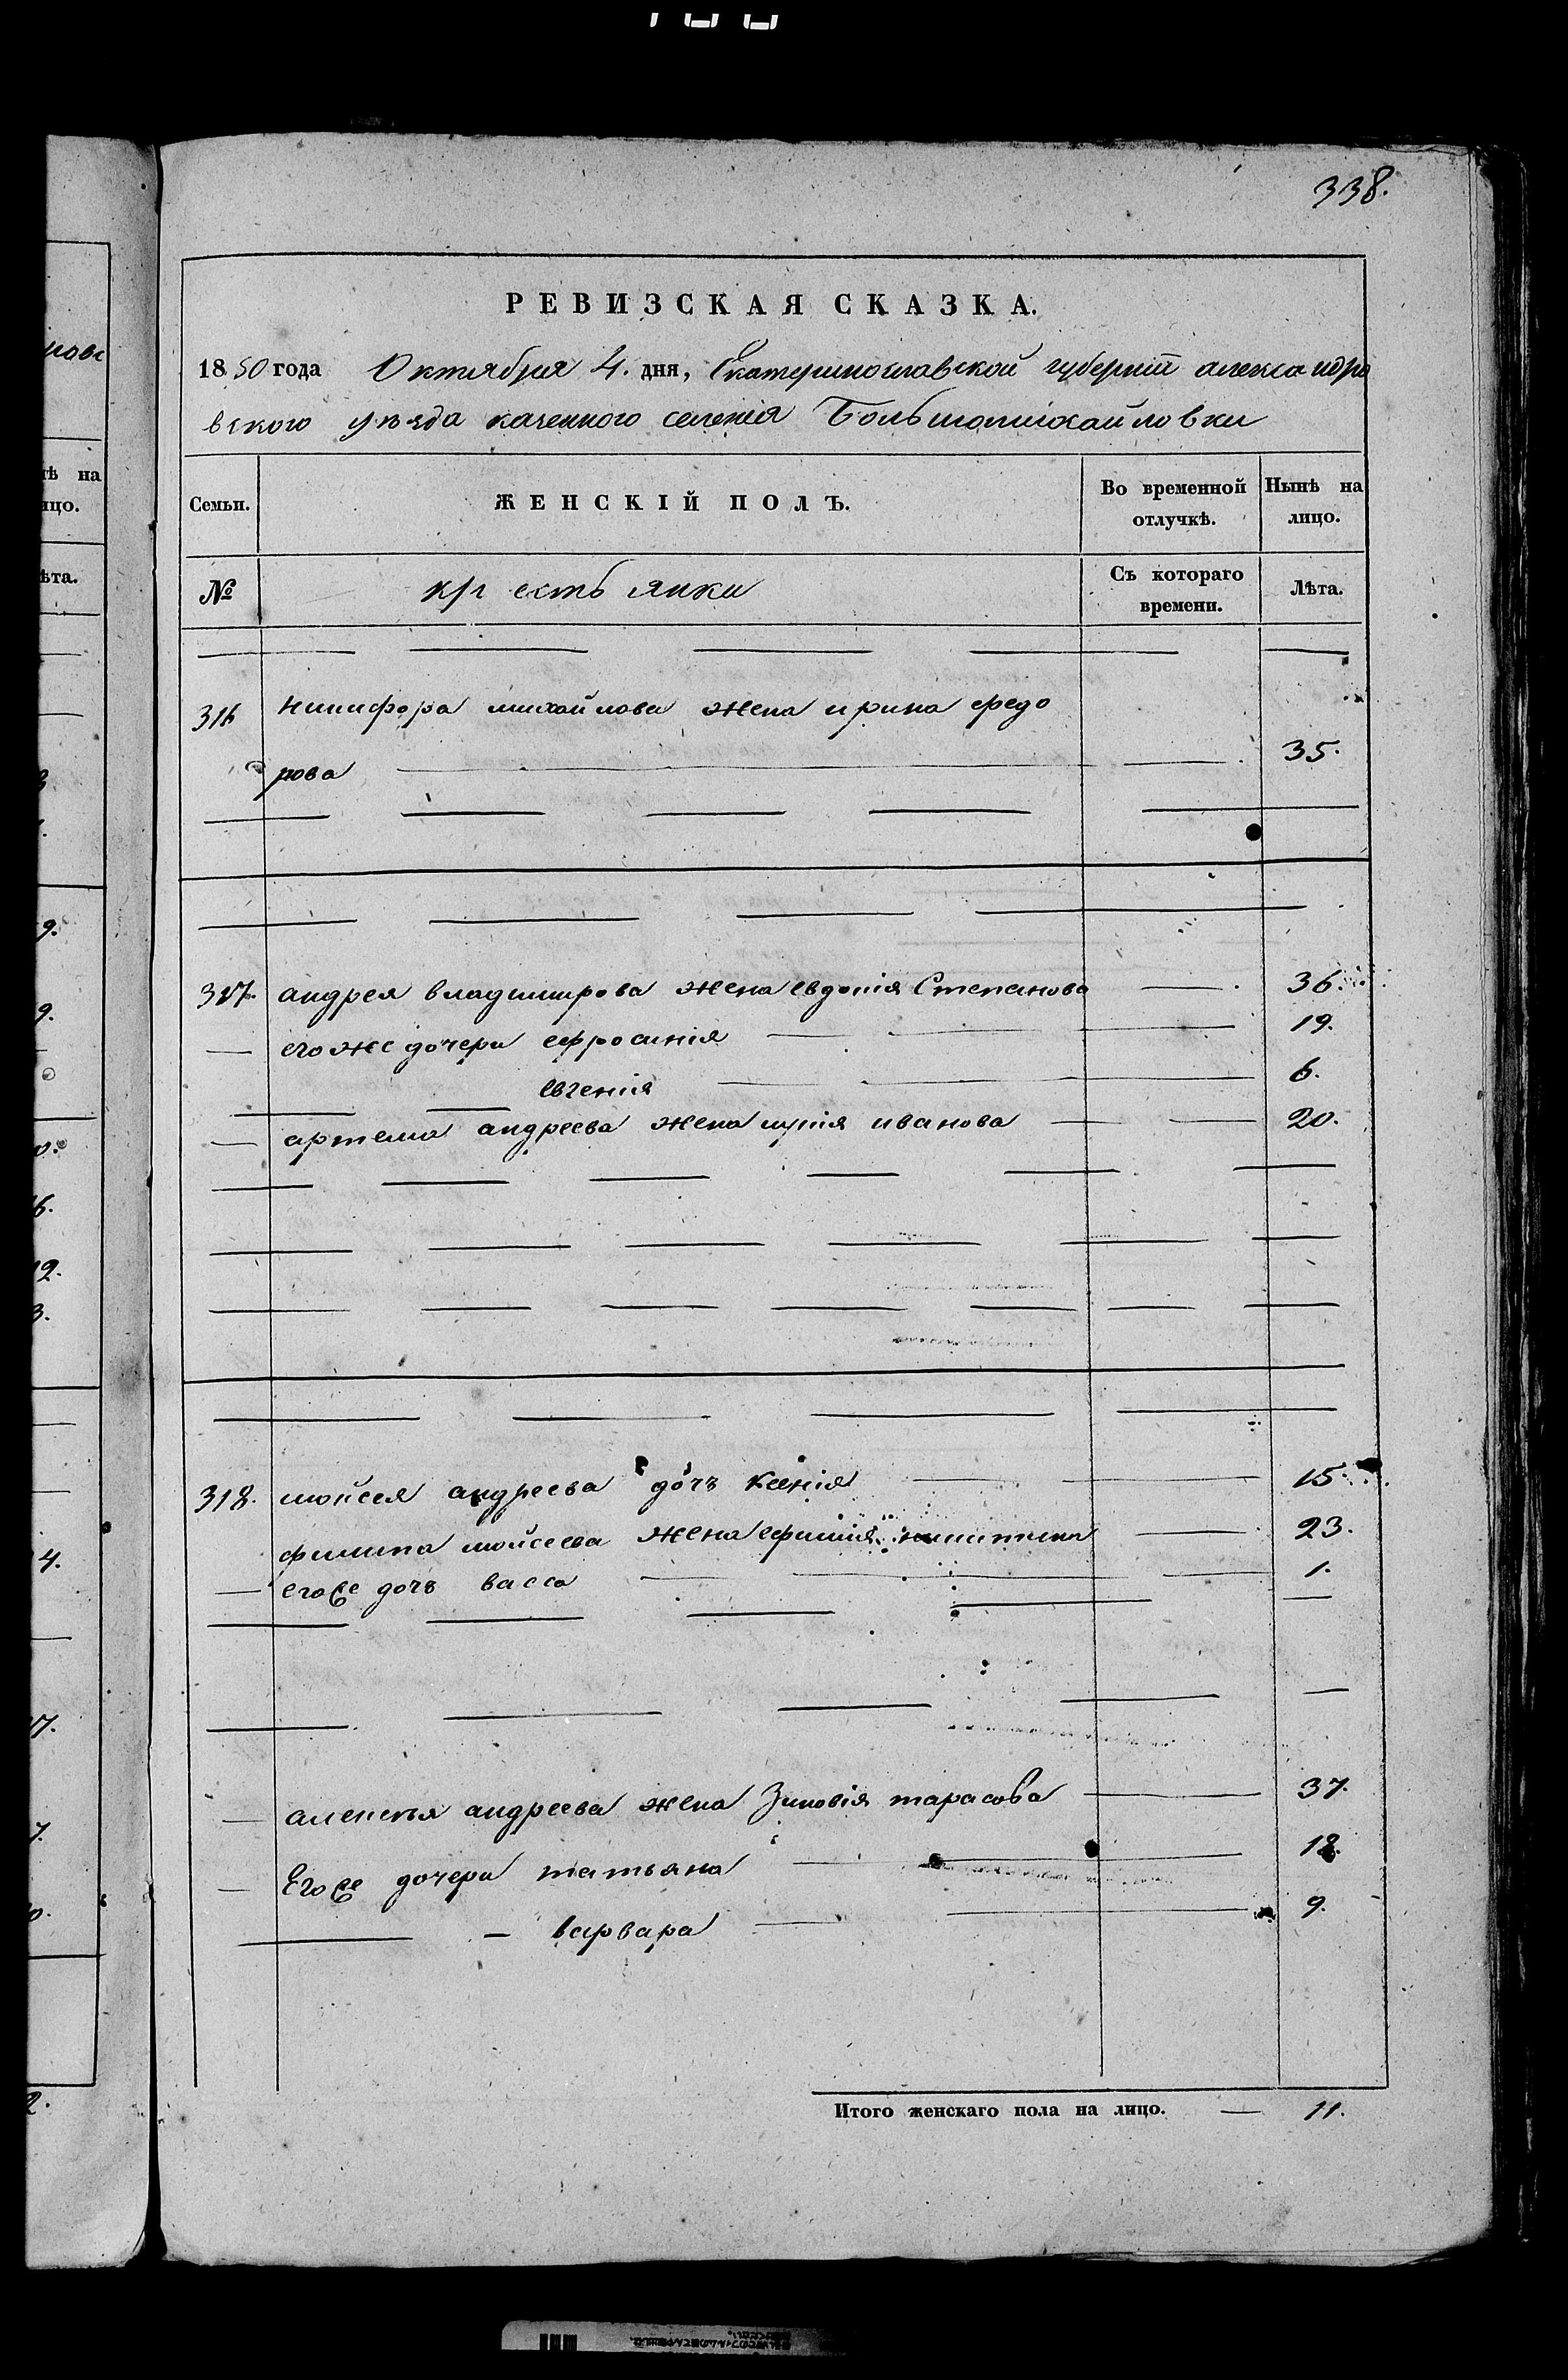 338.
РЕВИЗСКАЯ СКАЗКА.
1850 года Октября 4. дня, Екатеринославской губернiи александро
вского уезда казенного селенiя Большомихайловки
Семьи. ЖЕНСКІЙ ПОЛЪ. Во временной отлучкѣ. Нынѣ на лицо.
№ крестьянки Съ котораго времени. Лѣта.
316 никифора михайлова жена ирина федо
рова 35.
317. андрея владимирова жена евдокiя Степанова 36.
его же дочери ефросинiя 19.
евгенiя 6.
артема андреева жена иванова 20.
318. мойсея андреева дочь ксенiя 15.
филипа мойсеева жена ефимiя 23.
его же дочь васса 1.
алексея андреева жена Зиновiя тарасова 37.
Его же дочери татьяна 18.
варвара 9.
Итого женскаго пола на лицо. 11.